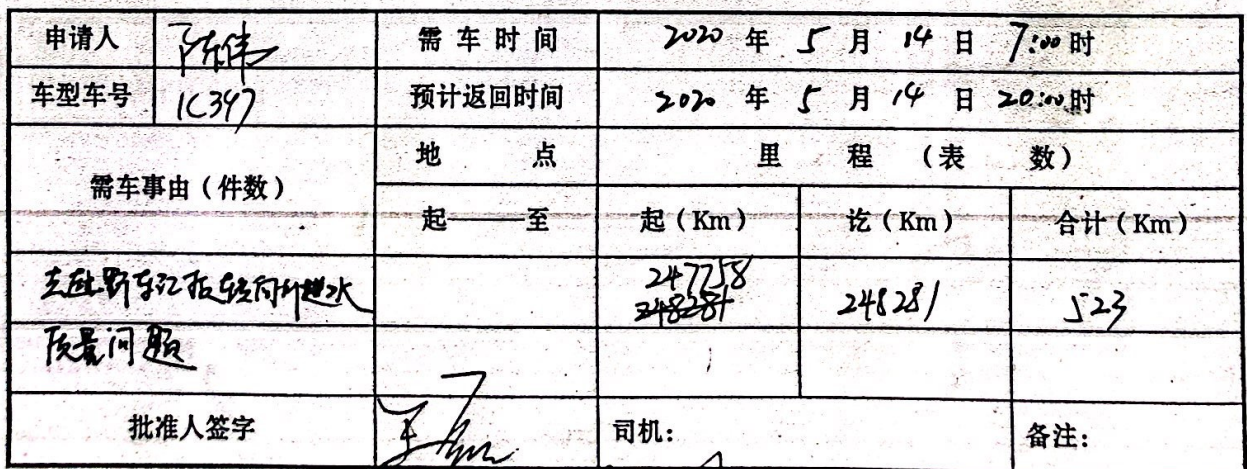 申请人 陈伟 需车时间 2020 年 5 月 14 日 7:00 时
车型车号 1C397 预计返回时间 2020 年 5 月 14 日 20:00 时
需车事由（件数） 地点 里程（表数）
起——至 起（Km） 讫（Km） 合计（Km）
247758
去 野车 转向 进水 248281 248281 523
质量问题
批准人签字 王 司机: 备注: